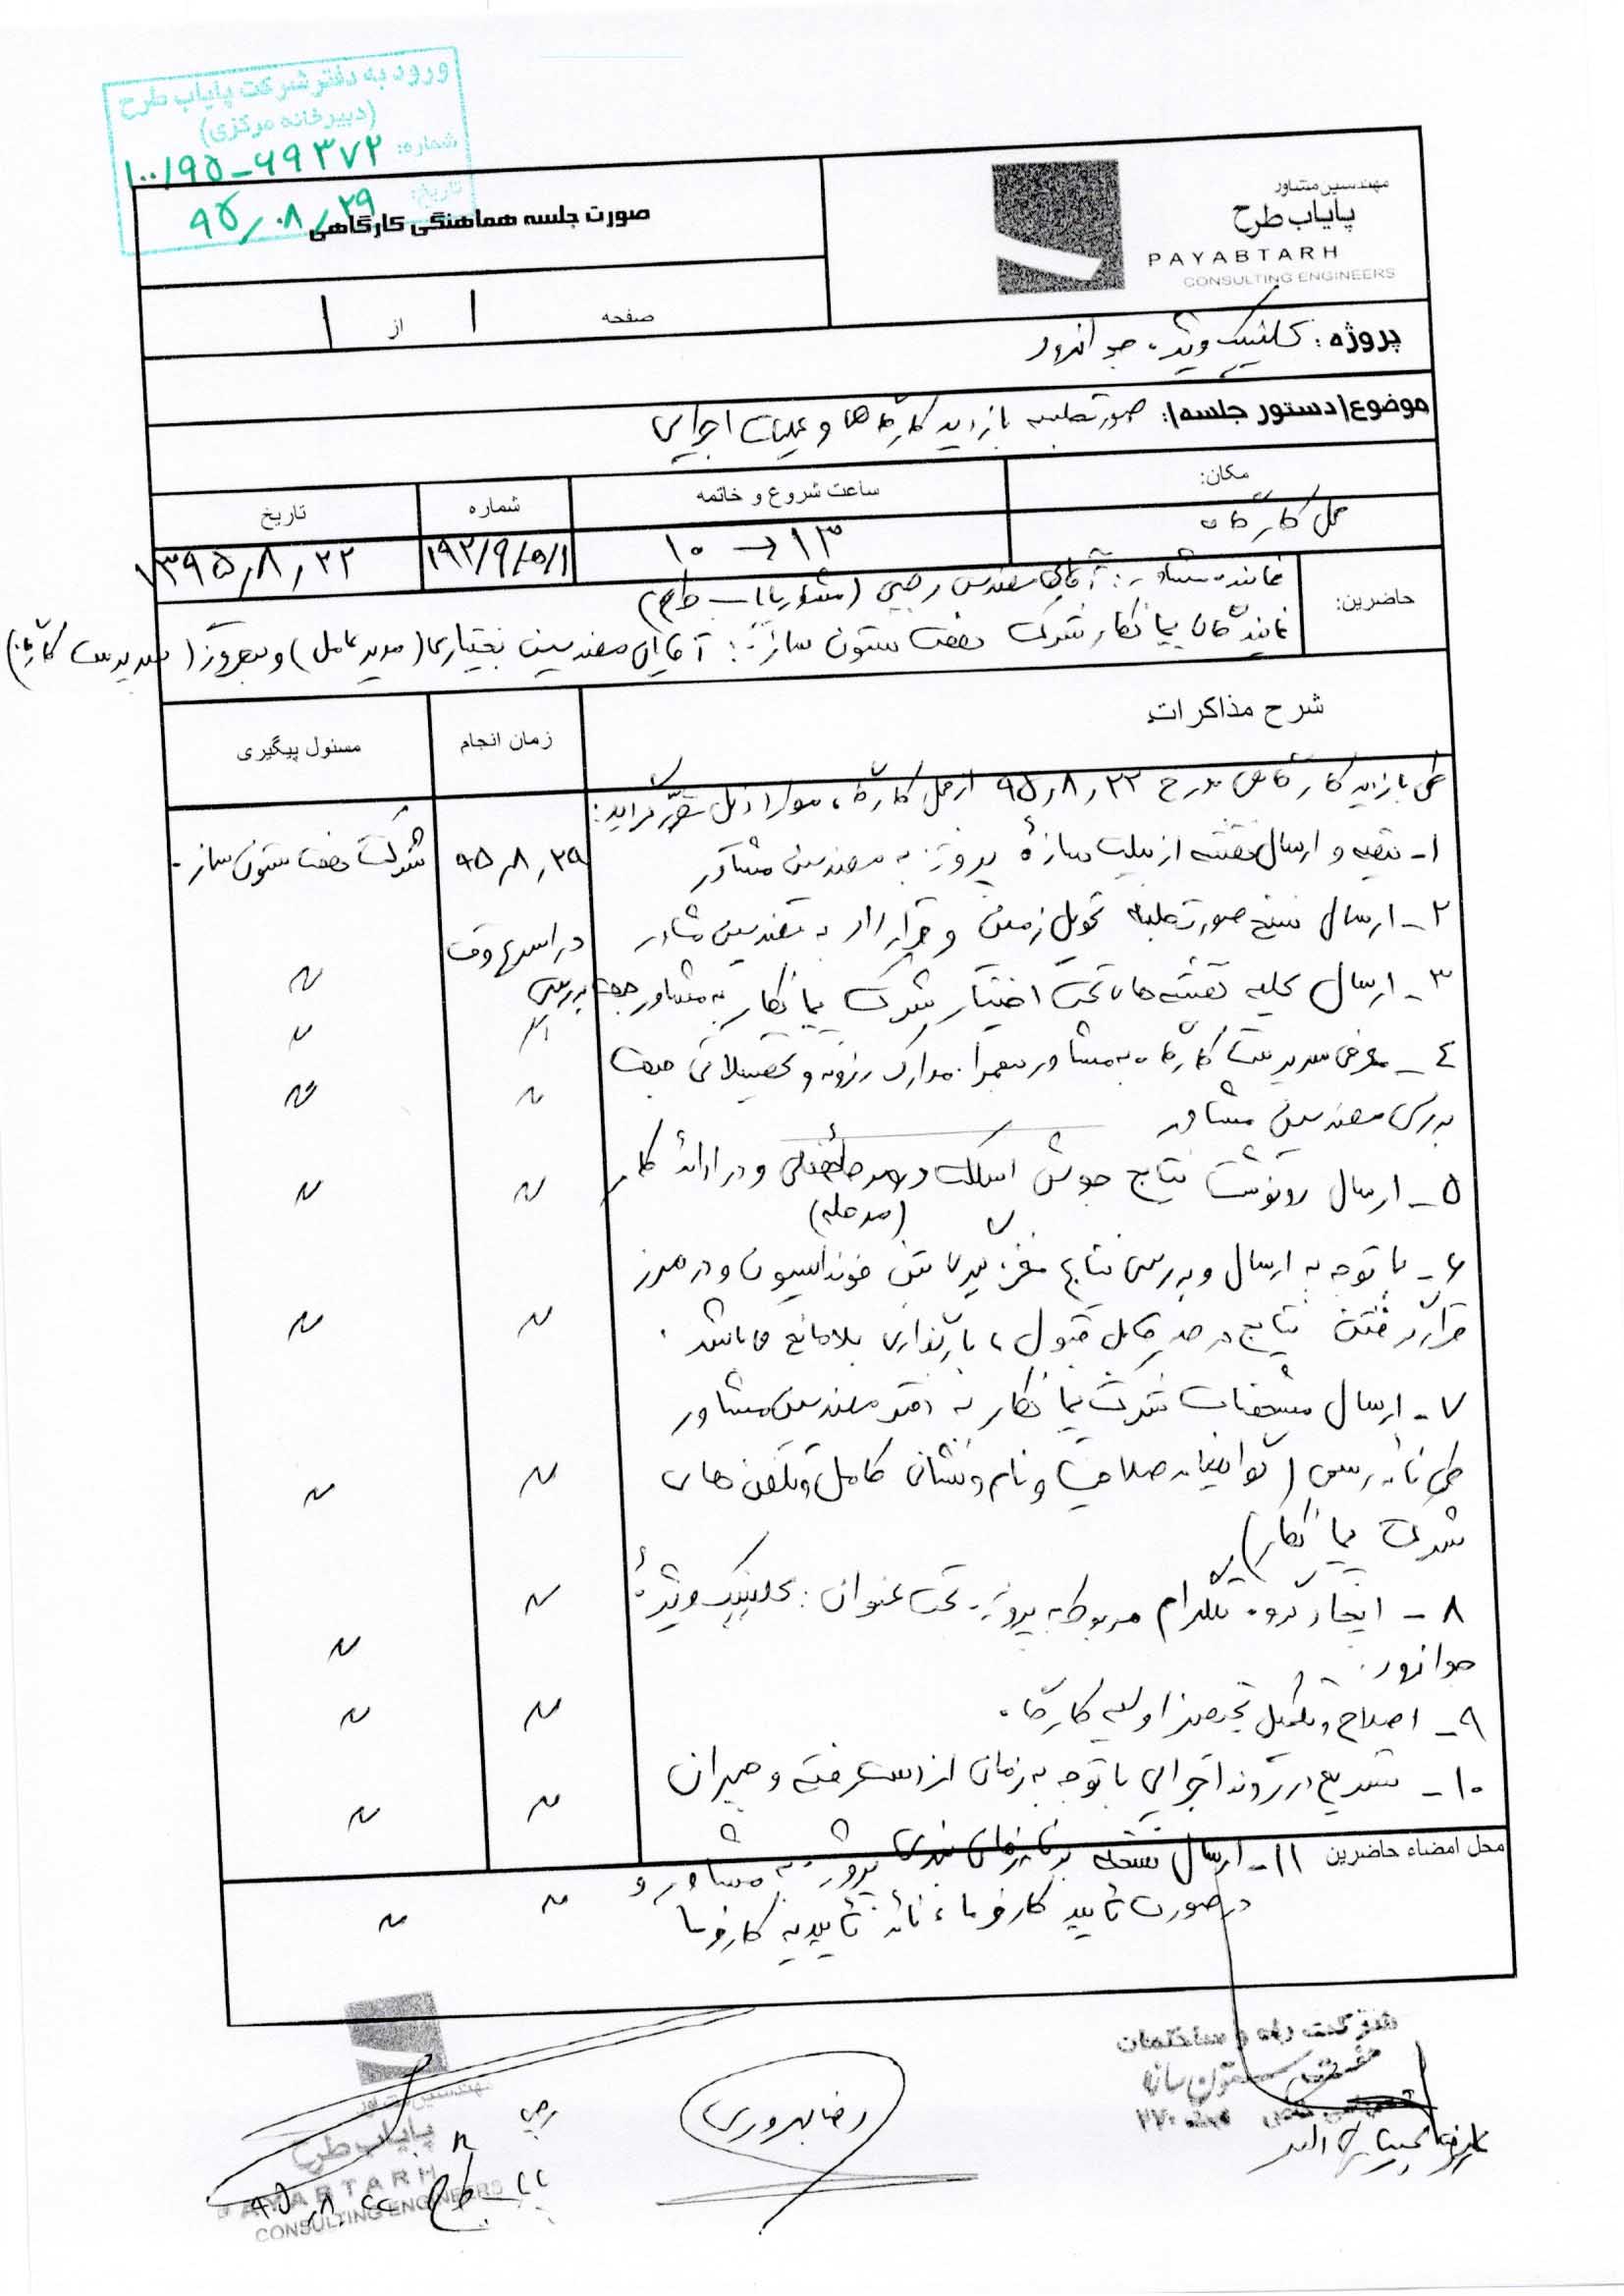 ورود به دفتر شرکت پایاب طرح
(دبیرخانه مرکزی)
شماره: ۱۰۰/۹۵-۶۹۳۷۲
تاریخ: ۹۵/۰۸/۲۹
مهندسین مشاور
پایاب طرح
PAYABTARH
CONSULTING ENGINEERS
صورت جلسه هماهنگی کارگاهی
صفحه ۱ از ۱
پروژه: کلینیک ویژه جوانرود
موضوع (دستور جلسه): صورتجلسه بازدید کارگاه ها و عملیات اجرایی
مکان: ساعت شروع و خاتمه شماره تاریخ
محل کارگاه ۱۳ → ۱۰ ۱۳۹۵/۸/۲۲
حاضرین: نماینده مشاور: آقای مهندس رجبی (مشاور پایاب طرح)
نمایندگان پیمانکار شرکت هفت ستون ساز: آقایان مهندسین بختیاری (مدیر عامل) و (سرپرست کارگاه)
شرح مذاکرات زمان انجام مسئول پیگیری
طی بازدید کارگاهی مورخ ۹۵/۸/۲۲ از محل کارگاه، موارد ذیل مقرر گردید:
۱- تهیه و ارسال نقشه ازبیلت سازهٔ پروژه به مهندسین مشاور ۹۵/۸/۲۹ شرکت هفت ستون ساز
۲- ارسال نسخ صورتجلسه تحویل زمین و قرارداد به مهندسین مشاور در اسرع وقت 〃
۳- ارسال کلیه نقشه های تحت اختیار شرکت پیمانکار به مشاور جهت بررسی 〃 〃
۴- معرفی سرپرست کارگاه به مشاور بهمراه مدارک رزومه و تحصیلاتی جهت 〃 〃
بررسی مهندسین مشاور
۵- ارسال رونوشت نتایج جوش اسکلت و در ادامهٔ کار 〃 〃
(مرحله)
۶- با توجه به ارسال و بررسی نتایج مغزه گیری بتن فونداسیون و در مرز
قرار گرفتن نتایج در حد قابل قبول، بارگذاری بلامانع می باشد. 〃 〃
۷- ارسال مشخصات شرکت پیمانکار به دفتر مهندسین مشاور
طی نامه رسمی (گواهینامه صلاحیت و نام و نشانی کامل و تلفن های 〃 〃
شرکت پیمانکار)
۸- ایجاد گروه تلگرام مربوط به پروژه تحت عنوان: کلینیک ویژهٔ 〃 〃
جوانرود.
۹- اصلاح و تکمیل تجهیز اولیه کارگاه. 〃 〃
۱۰- تسریع در روند اجرایی با توجه به زمان از دست رفته و جبران 〃 〃
محل امضاء حاضرین
۱۱- ارسال نسخه برنامه زمان بندی پروژه به مشاور و
در صورت تأیید کارفرما، نامه تأییدیه کارفرما 〃 〃
شرکت راه و ساختمان
هفت ستون ساز
رجبی
پایاب طرح
۹۵/۸/۲۲
مهندسین مشاور
پایاب طرح
PAYABTARH
CONSULTING ENGINEERS